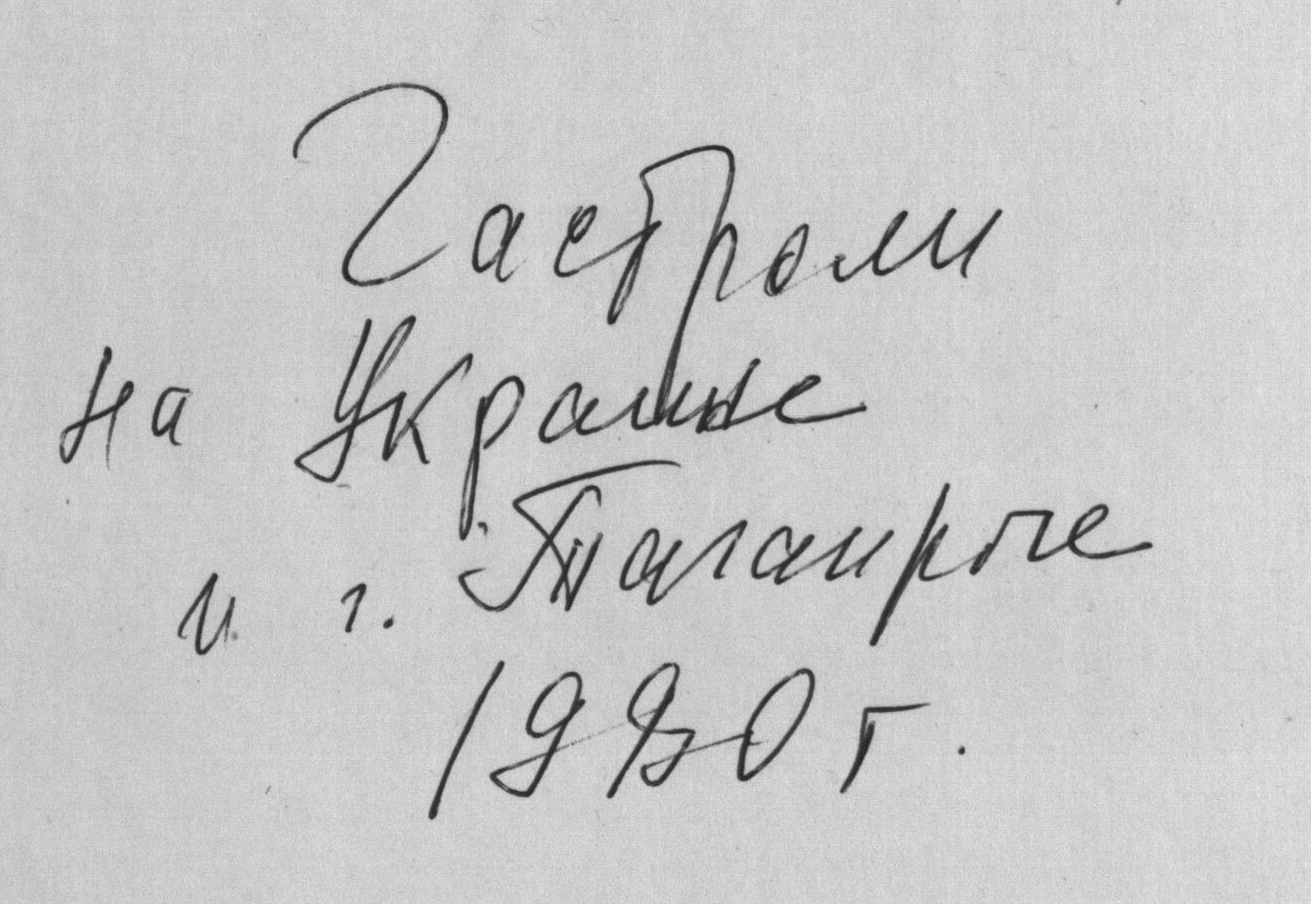 Гастроли
на Украине
и г. Таганроге
1980 г.